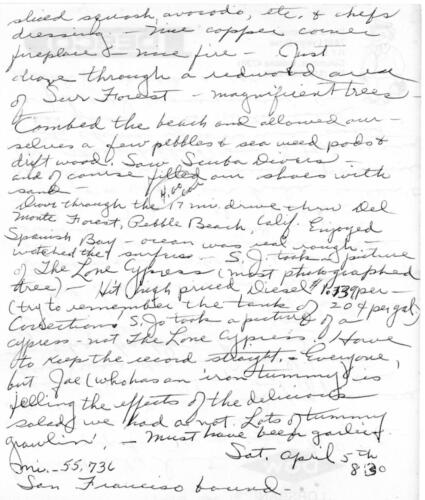 sliced squash, avocodo, etc. & chefs
dressing. Nice copper corner
fireplace & nice fire - Just
drove through a redwood area
of Surr Forest - magnificent trees -
Combed the beach and allowed our-
selves a few pebbles & sea weed pods &
driftwood. Saw Scuba Divers -
and of course filled our shoes with
sand -
Drove through the 17 mi. drive thru Del
Monte Forest, Pebble Beach, Calif. Enjoyed
Spanish Bay - ocean was real rough. -
watched the surfers - S. Jo took a picture
of The Lone Cypress (most photographed
tree) - Hit high priced Diesel per -
(try to remember the tank of 20¢ per gal)
Corrections S. Jo took a picture of a
cypress - not The Lone Cypress. I Have
to keep the record straight. - Everyone,
but Jae (who has an 'iron tummy') is
felling the effects of the delicious
salad we had at not. Lots of tummy
grawlin', - Must have been garlic.
Sat. April 5th
8:30
mi. - 55,736
San Francisco bound -